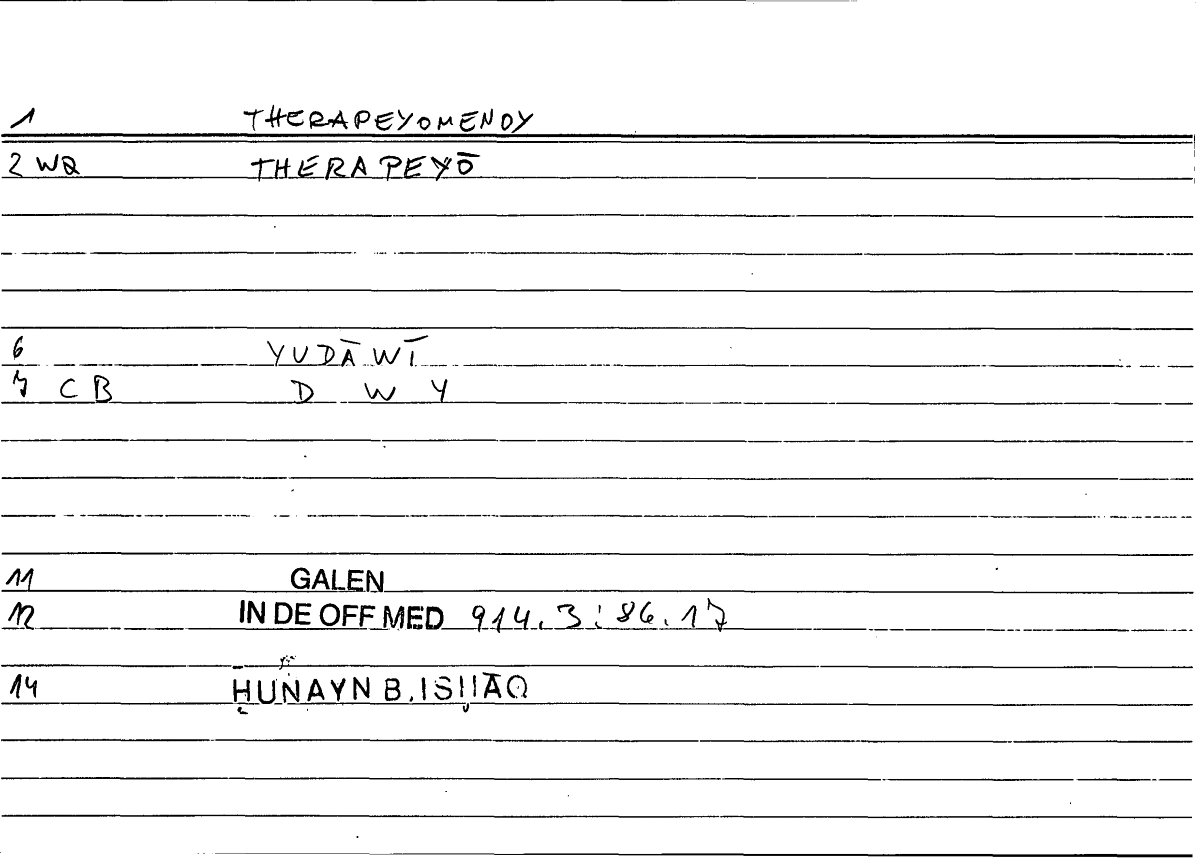 1 THERAPEYOMENOY
2 WQ THERAPEYŌ
6 YUDĀWĪ
7 CB D W Y
11 GALEN
12 IN DE OFF MED 914.3:86.17
14 ḤUNAYN B.ISḤĀQ